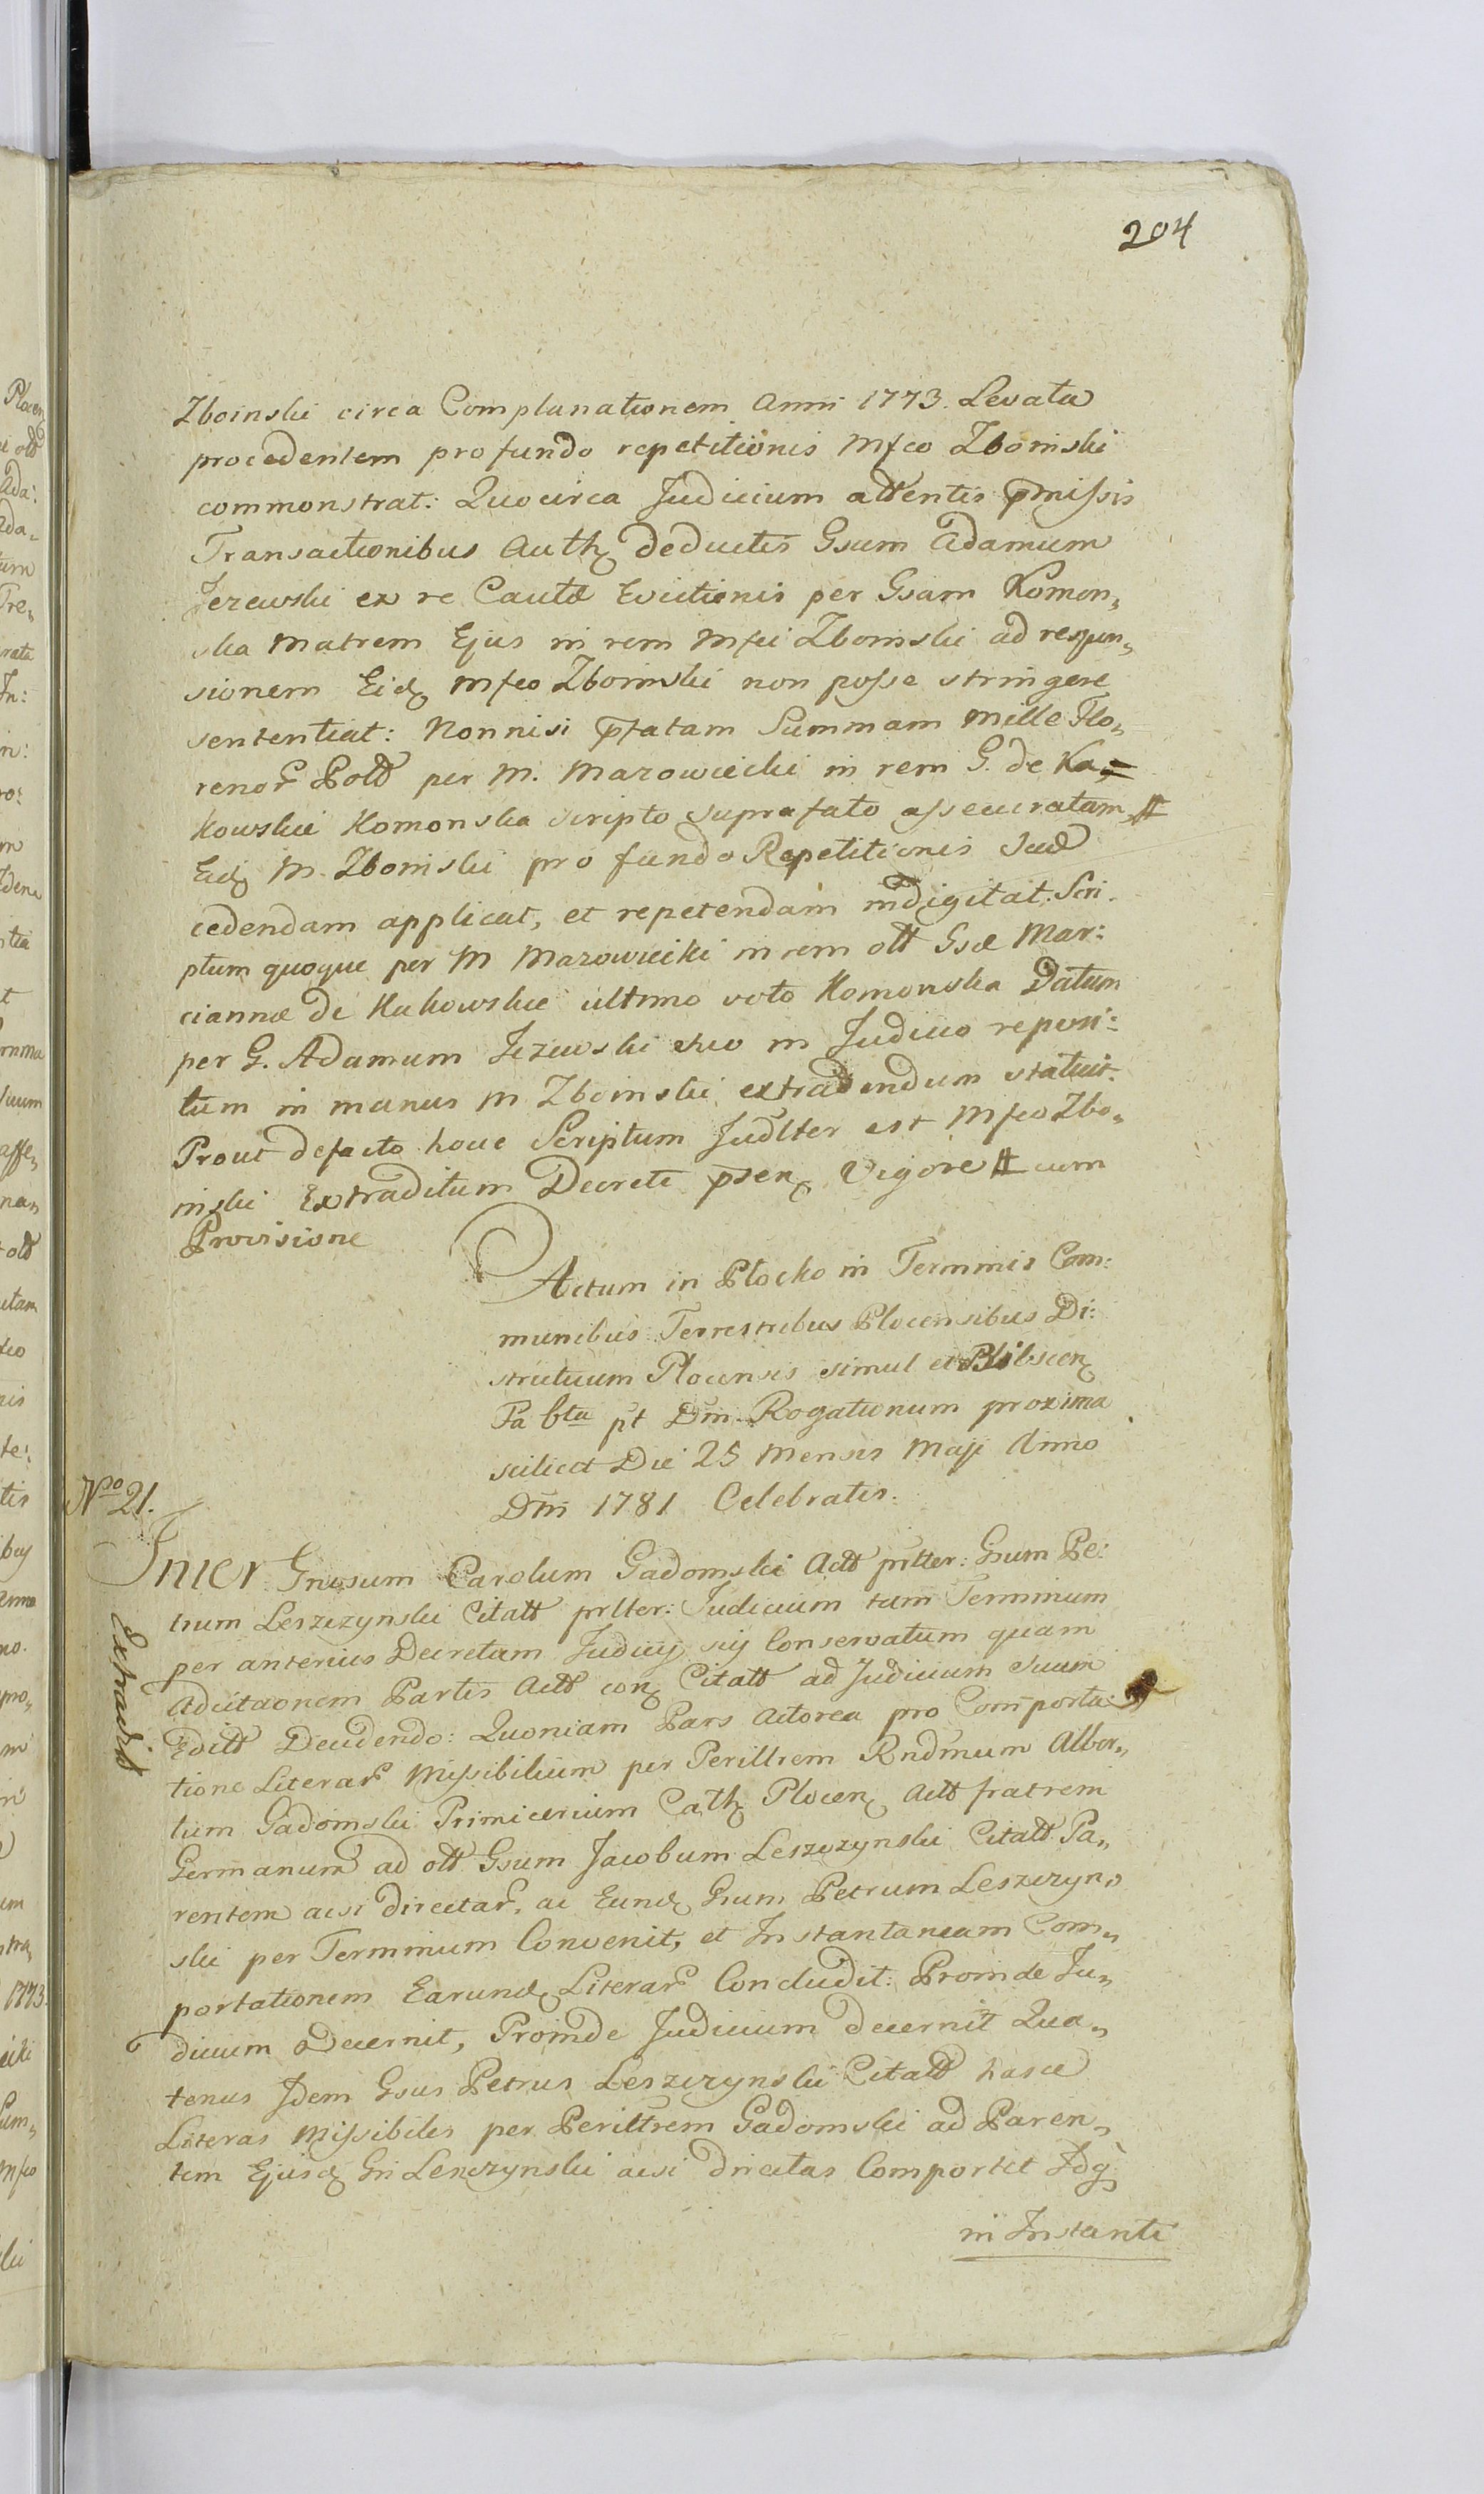 204
Zboinski circa Complanationem Anni 1773. Levata
procedentem pro fundo repetitionis Mfco Zboinski
commonstrat: Quocirca Judicium attentis pmissis
Transactionibus Auth deductis Gsum Adamum
Jezewski ex re Cautæ Evictionis per Gsam Komon„
ska Matrem Ejus in rem Mfci Zboinski ad respon„
sionem Eid Mfco Zboinski non posse stringere
sententiat: Nonnisi pfatam Summam Mille Flo„
renor Poll per M. Mazowiecki in rem G. de Ka=
kowskie Komonska scripto suprafato assecuratam #
Eid M. Zboinski pro fundo Repetitionis suæ
cedendam applicat, et repetendam indigitat: Scri.
ptum quoque per M Mazowiecki in rem olt Gsæ Mar:
ciannæ de Kakowskie ultimo voto Komonska Datum
per G. Adamum Jezewski in Judicio reposi:
tum in manus M Zboinski extradendum statuit.
Prout defacto hocce Scriptum Judlter est Mfco Zbo„
inski Extraditum Decreti psen Vigore # cum
Provisione
Actum in Płocko in Terminis Com:
munibus Terrestribus Plocensibus Di:
strictuum Plocensis simul et
Fa bta pt Dm Rogationum proxima
scilicet Die 25 Mensis Maji Anno
Dni 1781 Celebratis.
No 21.
Inter Gnosum Carolum Gadomski Actt prlter: Gsum Pe:
trum Leszczynski Citatt prlter: Judicium tam Terminum
per anterius Decretum Judicij sij Conservatum quam
Extradit
Adcitaonem Partis Actt con Citatt ad Judicium suum
Editt Decidendo: Quoniam Pars Actorea pro Comporta:
tione Literar Missibilium per Perilltrem Rndmum Alber„
tum Gadomski Primicerium Cath Plocen Actt fratrem
Germanum ad olt Gsum Jacobum Leszczynski Citatt Pa„
rentem acsi directar, ac Eund Gsum Petrum Leszczyn„
ski per Terminum Convenit, et Instantaneam Com„
portationem Earund Literar Concludit: Proinde Ju„
dicium Decernit, Proinde Judicium decernit Qua„
tenus Idem Gsus Petrus Leszczynski Citatt hasce
Literas Missibiles per Perilltrem Gadomski ad Paren„
tem Ejusd Gsi Lenczynski acsi directas Comportet Idq
in Instanti